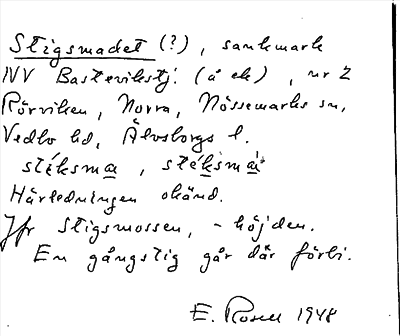 Stigsmadet (?), sankmark
NV Bastevikstj. (å ek), nr 2
Rörviken, Norra, Nössemarks sn,
Vedbo hd, Älvsborgs l.
stéksma, stéksmà
Härledningen okänd.
Jfr Stigsmossen, -höjden.
En gångstig går där förbi.
E. Rosell 1948